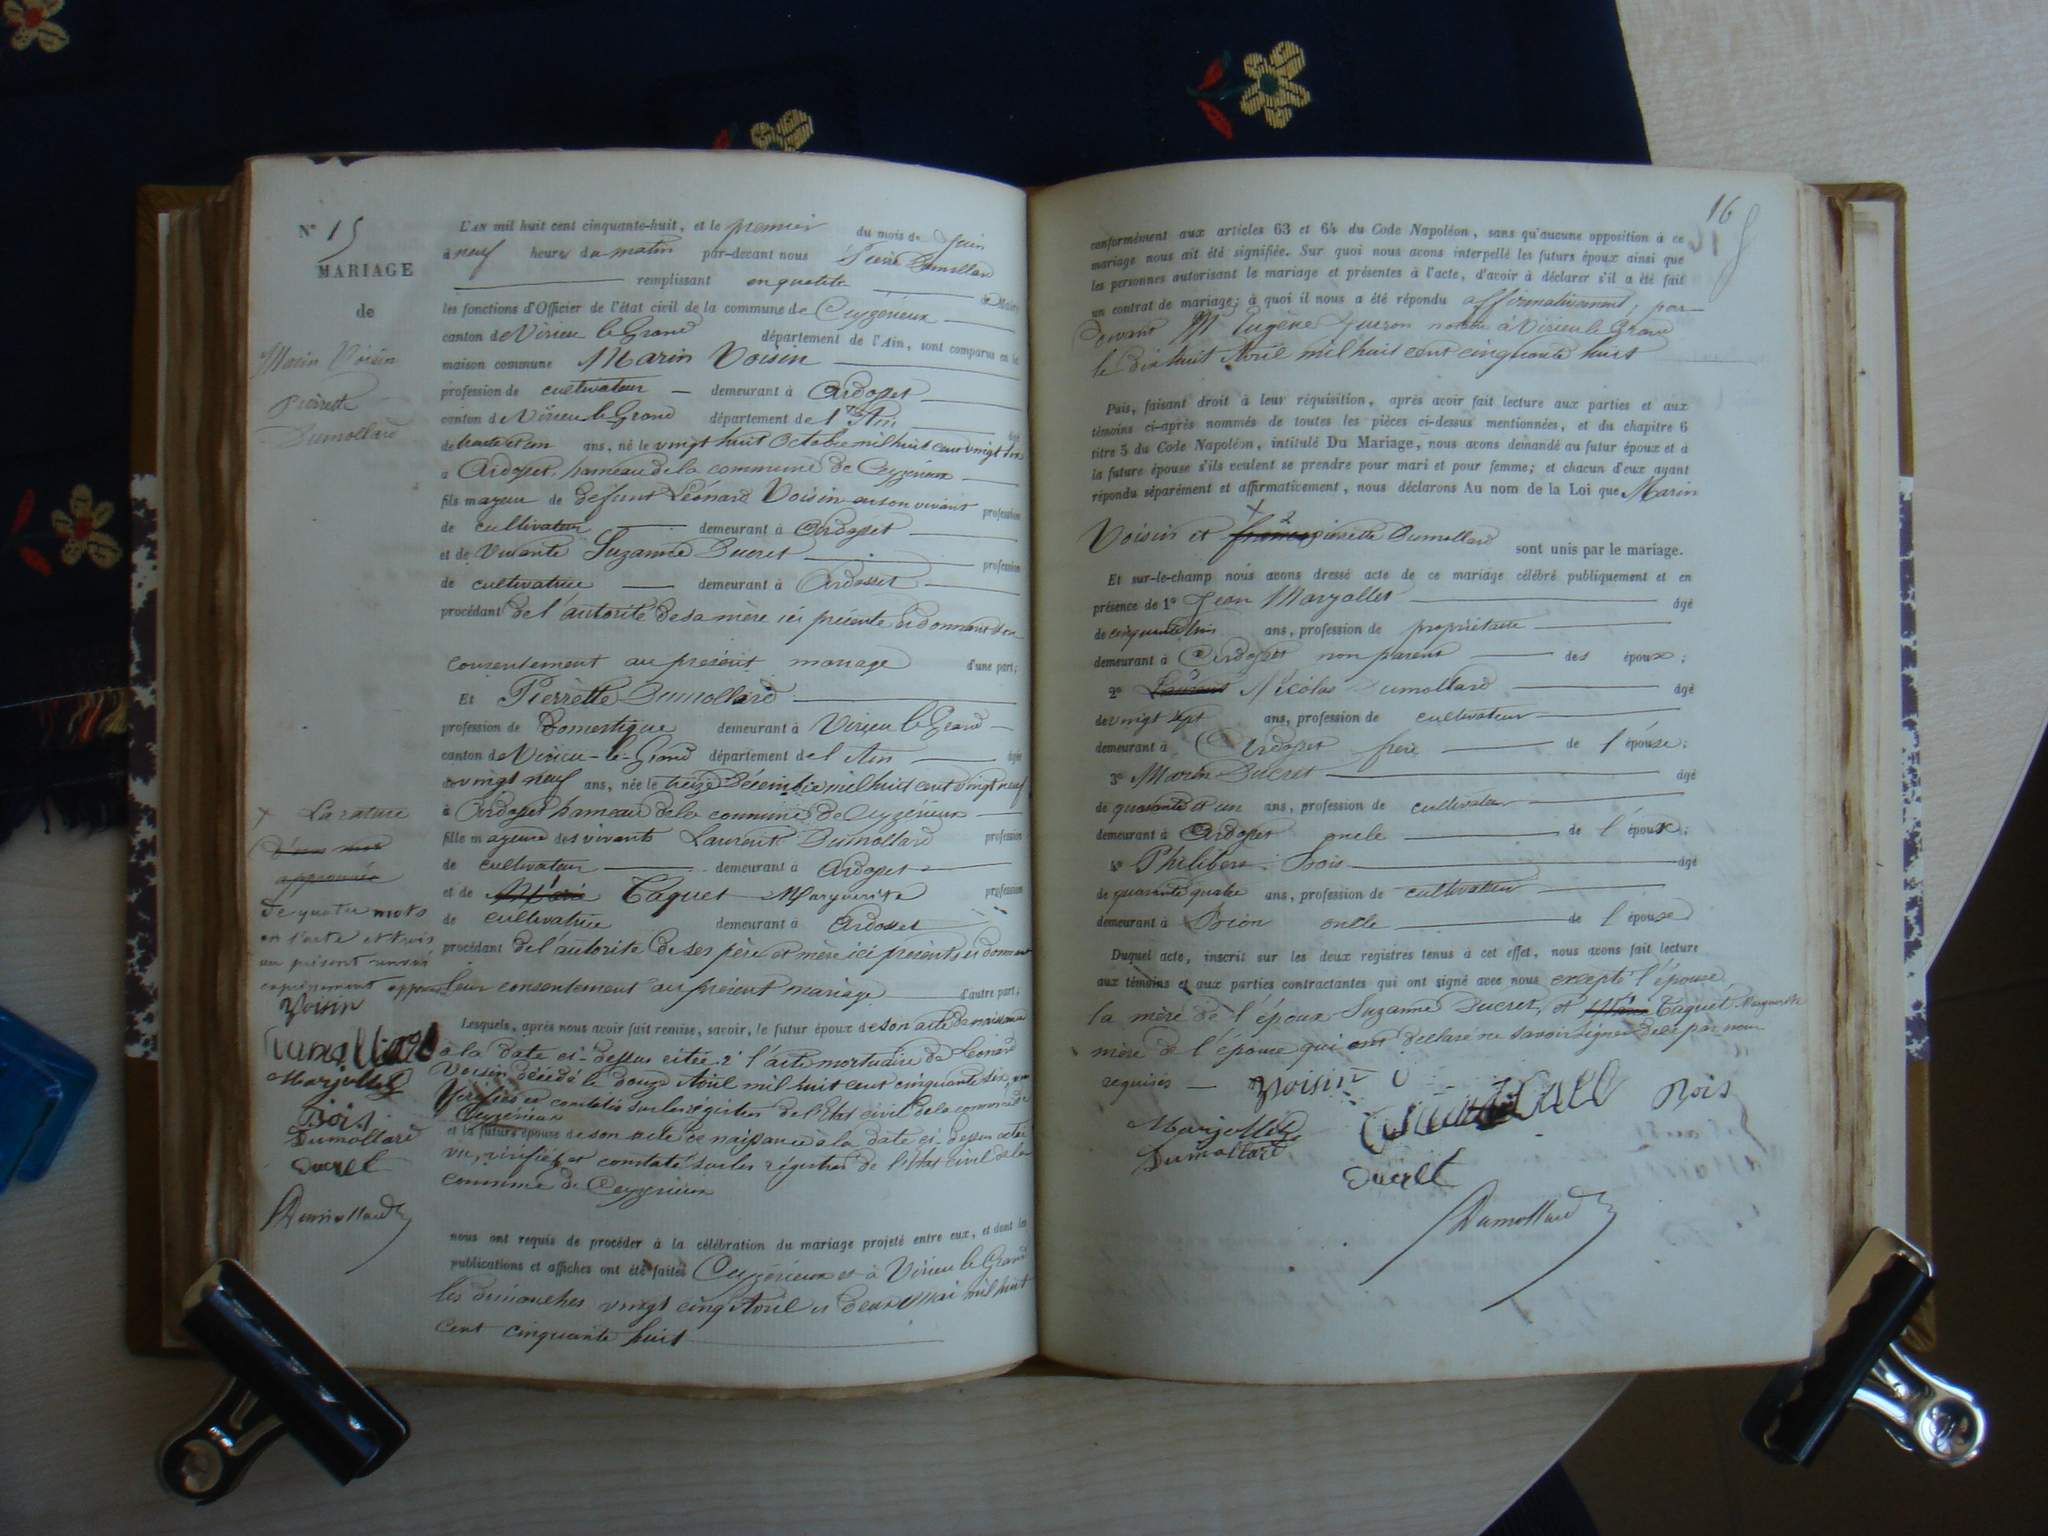 N° 15
MARIAGE
de
Marin Voisin
Pierrette
Dumollard
L'AN mil huit cent cinquante-huit, et le premier du mois de Juin
à neuf heures du matin par-devant nous Pierre Dumollard
remplissant en qualité de Maire
les fonctions d'Officier de l'état civil de la commune de Ceyzérieux
canton de Virieu le Grand département de l'Ain, sont comparus en la
maison commune Marin Voisin
profession de cultivateur demeurant à Ardosset
canton de Virieu le Grand département de l'Ain âgé
de trente et un ans, né le vingt huit Octobre mil huit cent vingt six
à Ardosset, hameau de la commune de Ceyzérieux
fils majeur de défunt Léonard Voisin en son vivant profession
de cultivateur demeurant à Ardosset
et de vivante Suzanne Ducret profession
de cultivatrice demeurant à Ardosset
procédant de l'autorité de sa mère ici présente et donnant son
consentement au présent mariage d'une part;
Et Pierrette Dumollard
profession de Domestique demeurant à Virieu le Grand
canton de Virieu-le-Grand département de l'Ain âgée
de vingt neuf ans, née le treize Décembre mil huit cent vingt neuf
à Ardosset hameau de la commune de Ceyzérieux
fille majeure des vivants Laurent Dumollard profession
de cultivateur demeurant à Ardosset
et de Taquet Marguerite profession
de cultivatrice demeurant à Ardosset
procédant de l'autorité de ses père et mère ici présents et donnant
leur consentement au présent mariage d'autre part;
Lesquels, après nous avoir fait remise, savoir, le futur époux de son acte de naissance
à la date ci-dessus citée 2° l'acte mortuaire de Léonard
Voisin décédé le douze Avril mil huit cent cinquante six,
vérifiés et constatés sur les régistres de l'Etat civil de la commune de
Ceyzérieux
et la future épouse de son acte de naissance à la date ci-dessus citée
vu, vérifié et constaté sur les régistres de l'état civil de la
commune de Ceyzérieux
nous ont requis de procéder à la célébration du mariage projeté entre eux, et dont les
publications et affiches ont été faites Ceyzérieux et à Virieu le Grand
les dimanches vingt cinq Avril et deux Mai mil huit
cent cinquante huit
+ La rature
d'un mot
approuvée
de quatre mots
en l'acte et trois
au présent renvoi
expressément
Voisin
Dumollard
Marjollet
Bois
Dumollard
Ducret
Dumollard
16
conformément aux articles 63 et 64 du Code Napoléon, sans qu'aucune opposition à ce
mariage nous ait été signifiée. Sur quoi nous avons interpellé les futurs époux ainsi que
les personnes autorisant le mariage et présentes à l'acte, d'avoir à déclarer s'il a été fait
un contrat de mariage; à quoi il nous a été répondu affirmativement, par-
devant Me Eugène notaire à Virieu le Grand
le dix huit Avril mil huit cent cinquante huit
Puis, faisant droit à leur réquisition, après avoir fait lecture aux parties et aux
témoins ci-après nommés de toutes les pièces ci-dessus mentionnées, et du chapitre 6
titre 5 du Code Napoléon, intitulé Du Mariage, nous avons demandé au futur époux et à
la future épouse s'ils veulent se prendre pour mari et pour femme; et chacun d'eux ayant
répondu séparément et affirmativement, nous déclarons Au nom de la Loi que Marin
Voisin et pierrette Dumollard sont unis par le mariage.
Et sur-le-champ nous avons dressé acte de ce mariage célébré publiquement et en
présence de 1° Jean Marjollet âgé
de cinquante ans, profession de propriétaire
demeurant à Ardosset non parent des époux;
2° Laurent Nicolas Dumollard âgé
de vingt sept ans, profession de cultivateur
demeurant à Ardosset frère de l'épouse;
3° Marin Ducret âgé
de quarante et un ans, profession de cultivateur
demeurant à Ardosset oncle de l'époux;
4° Philibert Bois âgé
de quarante quatre ans, profession de cultivateur
demeurant à oncle de l'épouse
Duquel acte, inscrit sur les deux registres tenus à cet effet, nous avons fait lecture
aux témoins et aux parties contractantes qui ont signé avec nous excepté l'épouse,
la mère de l'époux Suzanne Ducret, et Taquet Marguerite
mère de l'épouse qui ont déclaré ne savoir signer de ce par nous
requises
Voisin
Bois
Marjollet
Dumollard
Ducret
Dumollard